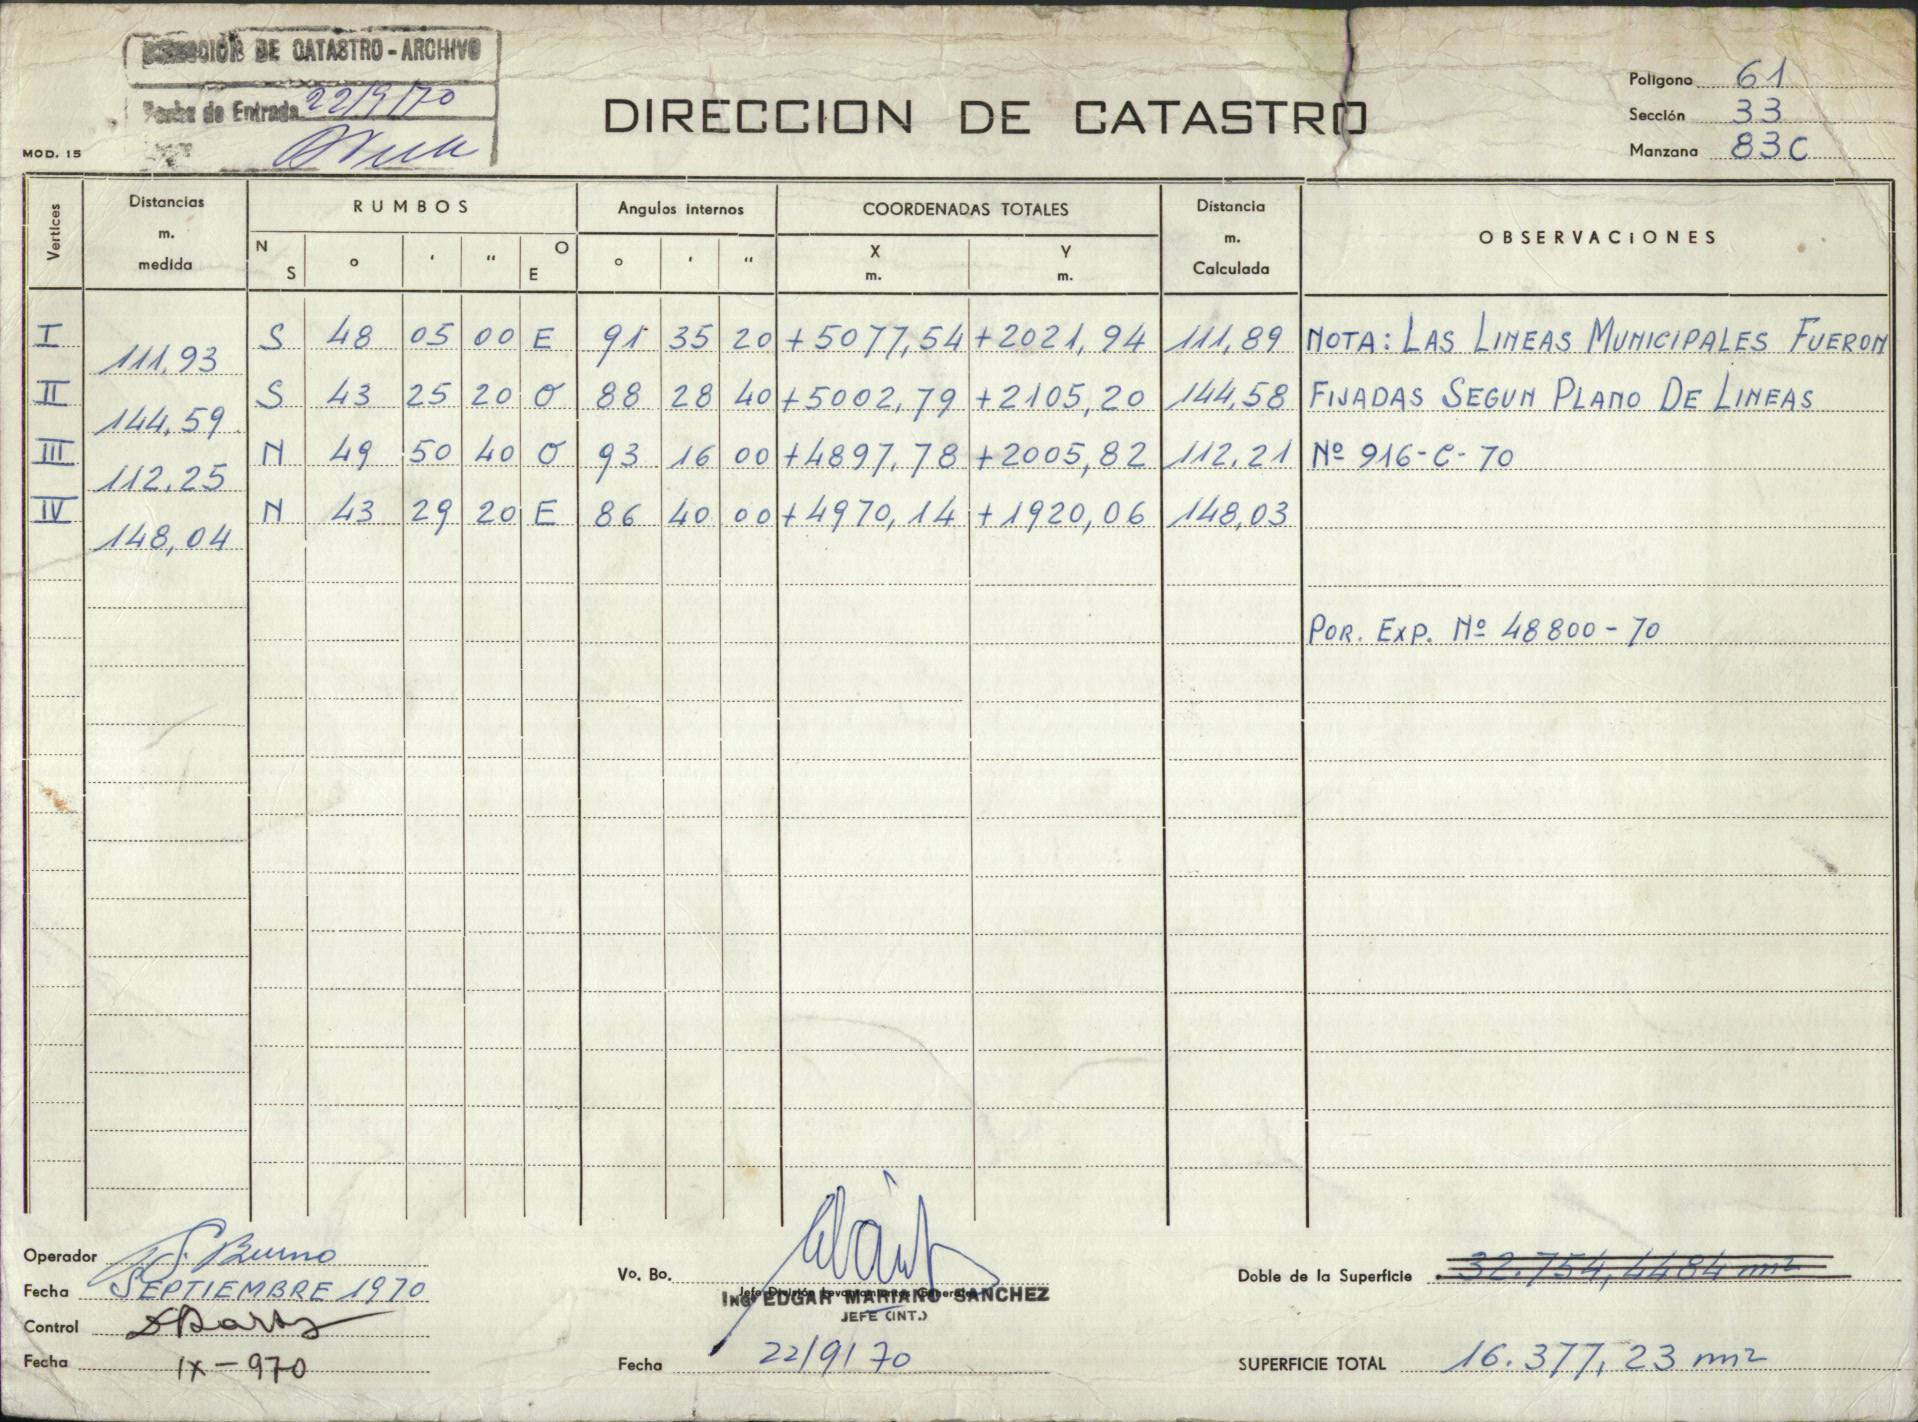 DIRECCIÓN DE CATASTRO - ARCHIVO
Fecha de Entrada 22/9/70
MOD. 15
DIRECCION DE CATASTRO
Polígono 61
Sección 33
Manzana 83C
Vertices
Distancias m. medida
RUMBOS
Angulos internos
COORDENADAS TOTALES
Distancia m. Calculada
OBSERVACIONES
N S ° ' " O E ° ' " X m. Y m.
I 111,93 S 48 05 00 E 91 35 20 +5077,54 +2021,94 111,89 NOTA: LAS LINEAS MUNICIPALES FUERON
II 144,59 S 43 25 20 O 88 28 40 +5002,79 +2105,20 144,58 FIJADAS SEGUN PLANO DE LINEAS
III 112,25 N 49 50 40 O 93 16 00 +4897,78 +2005,82 112,21 Nº 916-C-70
IV 148,04 N 43 29 20 E 86 40 00 +4970,14 +1920,06 148,03
POR. EXP. Nº 48800-70
Operador
Fecha SEPTIEMBRE 1970
Control
Fecha IX-970
Vo. Bo.
Jefe División Levantamientos Generales
Ing. EDGAR MARIANO SANCHEZ
JEFE (INT.)
Fecha 22/9/70
Doble de la Superficie 32.754,4484 m²
SUPERFICIE TOTAL 16.377,23 m²